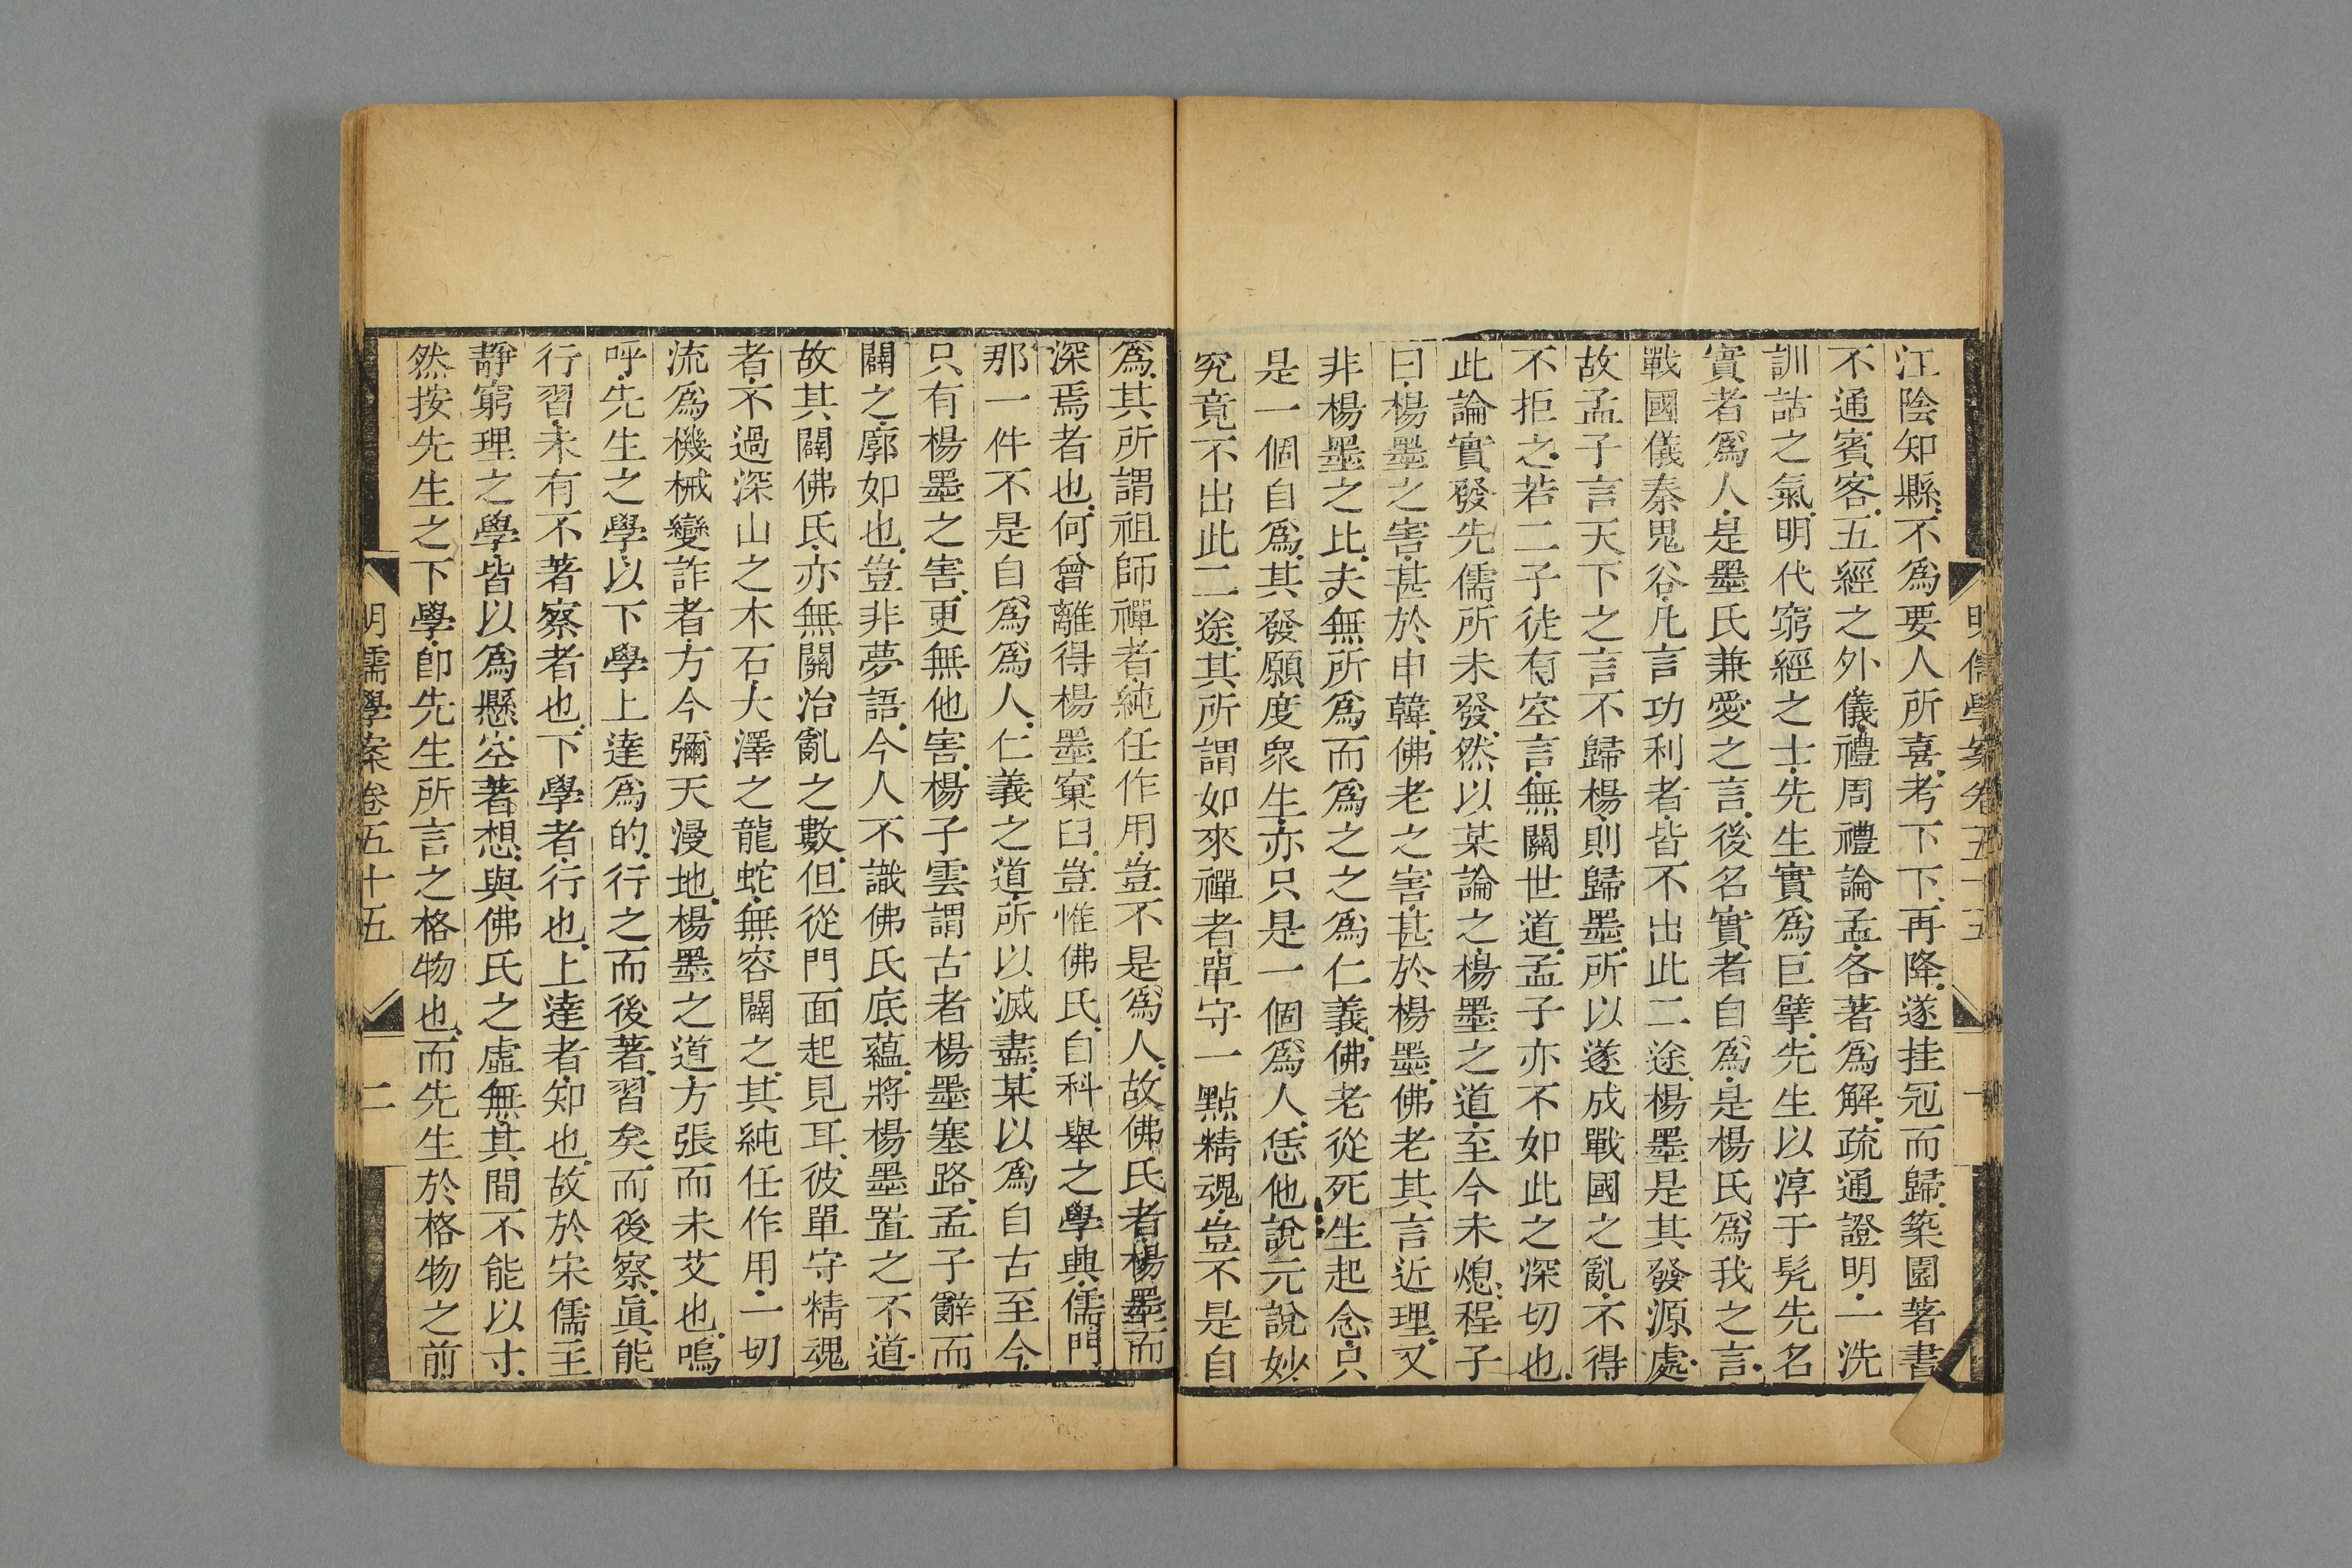 明儒學案卷五十五
一
江陰知縣不爲要人所喜考下下再降遂挂冠而歸築園著書
不通賓客五經之外儀禮周禮論孟各著爲解疏通證明一洗
訓詁之氣明代窮經之士先生實爲巨擘先生以淳于髡先名
實者爲人是墨氏兼愛之言後名實者自爲是楊氏爲我之言
戰國儀秦鬼谷凡言功利者皆不出此二途楊墨是其發源處
故孟子言天下之言不歸楊則歸墨所以遂成戰國之亂不得
不拒之若二子徒有空言無關世道孟子亦不如此之深切也
此論實發先儒所未發然以某論之楊墨之道至今未熄程子
曰楊墨之害甚於申韓佛老之害甚於楊墨佛老其言近理又
非楊墨之比夫無所爲而爲之之爲仁義佛老從死生起念只
是一個自爲其發願度衆生亦只是一個爲人恁他說元說妙
究竟不出此二途其所謂如來禪者單守一點精魂豈不是自
爲其所謂祖師禪者純任作用豈不是爲人故佛氏者楊墨而
深焉者也何曾離得楊墨窠臼豈惟佛氏自科舉之學興儒門
那一件不是自爲爲人仁義之道所以滅盡某以爲自古至今
只有楊墨之害更無他害楊子雲謂古者楊墨塞路孟子辭而
闢之廓如也豈非夢語今人不識佛氏底蘊將楊墨置之不道
故其闢佛氏亦無關治亂之數但從門面起見耳彼單守精魂
者不過深山之木石大澤之龍蛇無容闢之其純任作用一切
流爲機械變詐者方今彌天漫地楊墨之道方張而未艾也嗚
呼先生之學以下學上達爲的行之而後著習矣而後察眞能
行習未有不著察者也下學者行也上達者知也故於宋儒王
靜窮理之學皆以爲懸空著想與佛氏之虛無其間不能以寸
然按先生之下學卽先生所言之格物也而先生於格物之前
明儒學案卷五十五
二